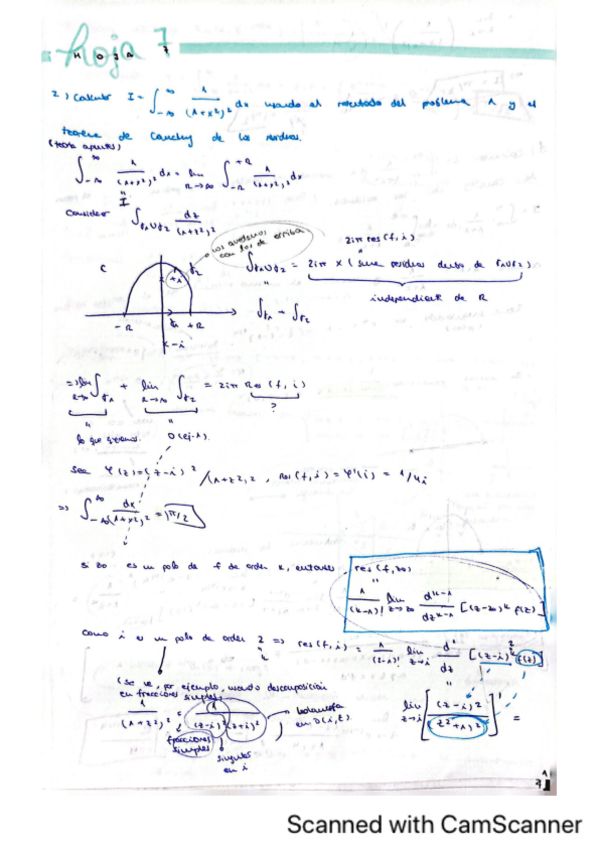 Hoja 7
HOJA 7
2) Calcular I = ∫_{-∞}^{∞} 1/(1+x²)² dx usando el resultado del problema 1 y el
teorema de Cauchy de los residuos.
(teoría apuntes)
∫_{-∞}^{∞} 1/(1+x²)² dx = lim_{R→∞} ∫_{-R}^{+R} 1/(1+x²)² dx
" I
Consider ∫_{γ1∪γ2} dz/(1+z²)²
los quedamos con los de arriba
2iπ res(f,i)
C
γ2
+i
∫_{γ1∪γ2} = 2iπ × (suma residuos dentro de γ1∪γ2)
independiente de R
∫_{γ1} - ∫_{γ2}
-R γ1 +R
x -i
=> lim_{R→∞} ∫_{γ1} + lim_{R→∞} ∫_{γ2} = 2iπ Res(f,i)
?
lo que queremos. 0 (ej. 1).
sea φ(z) = (z-i)²/(1+z²)², Res(f,i) = φ'(i) = 1/4i
=> ∫_{-∞}^{∞} dx/(1+x²)² = π/2
si z0 es un polo de f de orden k, entonces res(f,z0)
"
1/(k-1)! lim_{z→z0} d^{k-1}/dz^{k-1} [(z-z0)^k f(z)]
como i es un polo de orden 2 => res(f,i) = 1/(2-1)! lim_{z→i} d¹/dz [(z-i)² f(z)]
(se ve, por ejemplo, usando descomposición
en fracciones simples,
1/(1+z²)² = 1/((z-i)²(z+i)²) )
holomorfa
en D(i,ε)
lim_{z→i} [(z-i)²/(z²+1)²]' =
fracciones
simples
singular
en i
1
7
Scanned with CamScanner